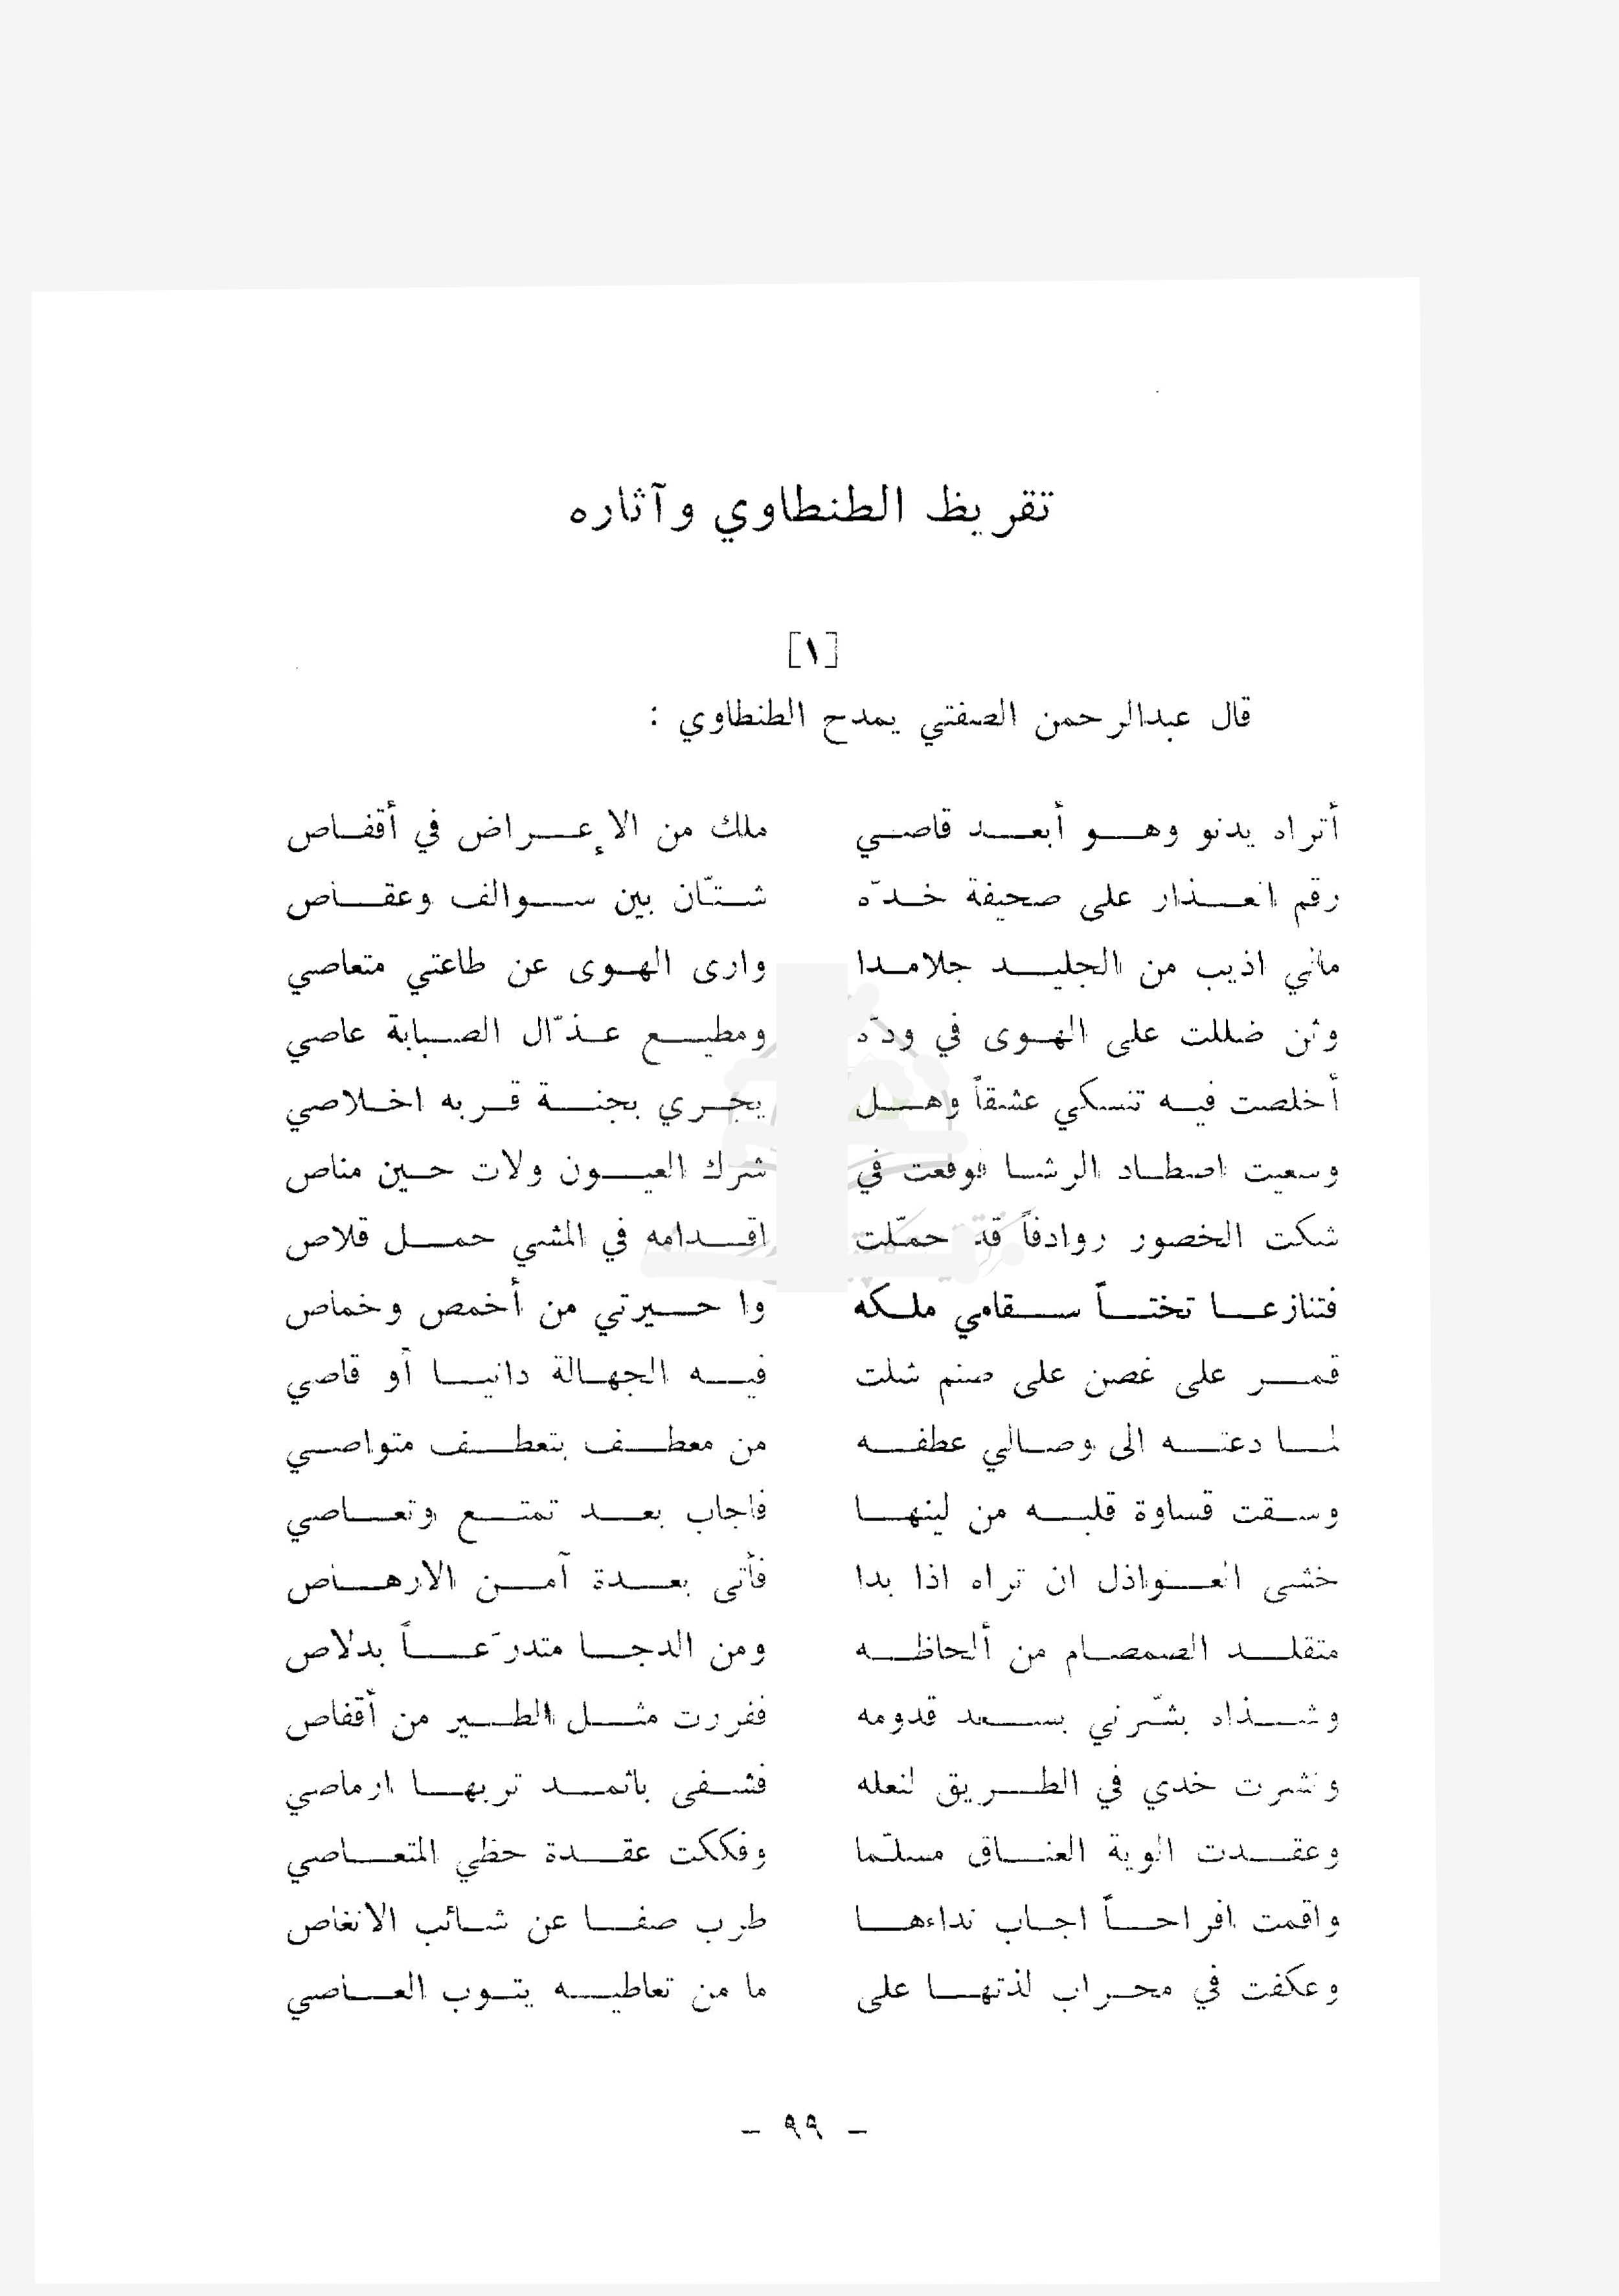 تقريظ الطنطاوي وآثاره
[١]
قال عبدالرحمن الصفتي يمدح الطنطاوي :
أتراه يدنو وهو أبعد قاصي ملك من الاعراض في أقفاص
رقم العذار على صحيفة خدّه شتّان بين سوالف وعقاص
مالي اذيب من الجليد جلامدا وارى الهوى عن طاعتي متعاصي
وئن ضللت على الهوى في ودّه ومطيع عذّال الصبابة عاصي
أخلصت فيه تنسكي عشقاً وهل يجري بجنة قربه اخلاصي
وسعيت اصطاد الرشا فوقعت في شرك العيون ولات حين مناص
شكت الخصور روادفاً قد حمّلت اقدامه في المشي حمل قلاص
فتنازعا تختاً سقامي ملكه وا حيرتي من أخمص وخماص
قمر على غصن على صنم شلت فيه الجهالة دانيا أو قاصي
لما دعته الى وصالي عطفه من معطف بتعطف متواصي
وسقت قساوة قلبه من لينها فاجاب بعد تمتع وتعاصي
خشى العواذل ان تراه اذا بدا فأتى بعدة آمن الارهاص
متقلد الصمصام من ألحاظه ومن الدجا متدرّعاً بدلاص
وشذاه بشّرني بسعد قدومه ففررت مثل الطير من أقفاص
ونشرت خدي في الطريق لنعله فشفى باثمد تربها ارماصي
وعقدت الوية العناق مسلّما وفككت عقدة حظي المتعاصي
واقمت افراحاً اجاب نداءها طرب صفا عن شائب الانغاص
وعكفت في محراب لذتها على ما من تعاطيه يتوب العاصي
– ٩٩ –